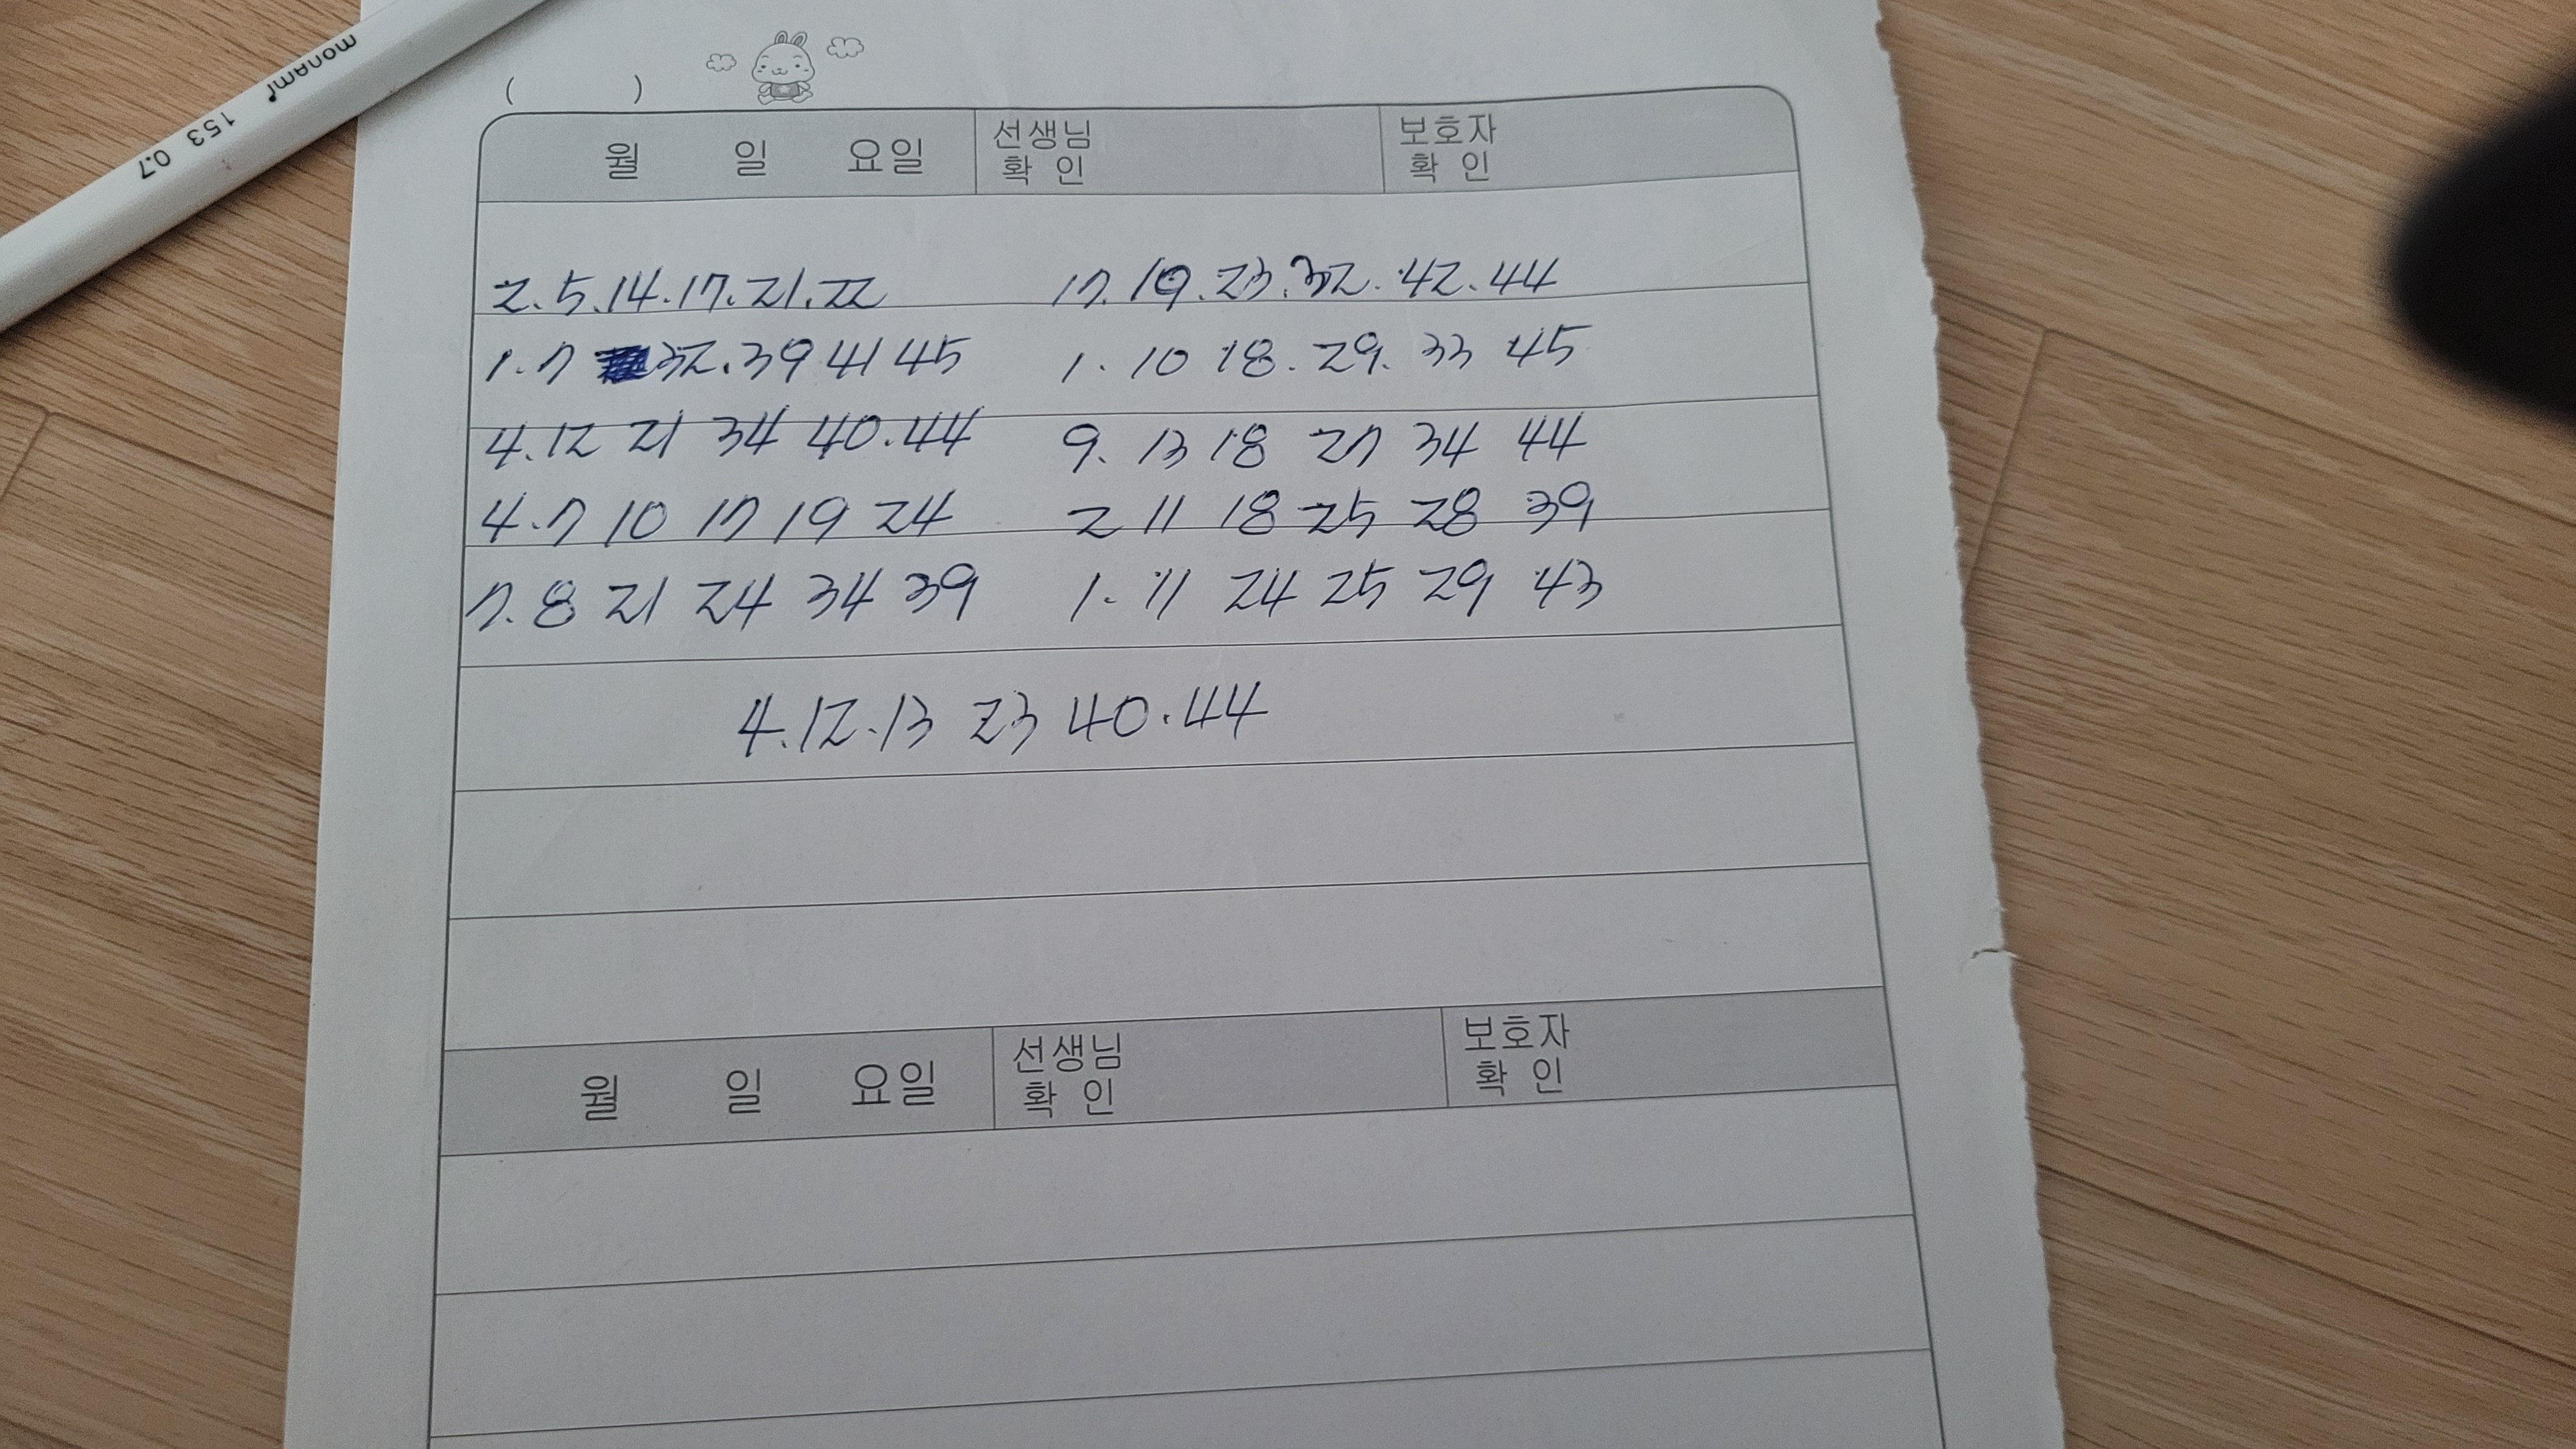 monami 153 0.7
( )
월 일 요일 선생님 확인 보호자 확인
2.5.14.17.21.22 17.19.23.32.42.44
1.7 32.39 41 45 1.10 18.29.33 45
4.12 21 34 40.44 9.13 18 27 34 44
4.7 10 17 19 24 2 11 18 25 28 39
7.8 21 24 34 39 1.11 24 25 29 43
4.12.13 23 40.44
월 일 요일 선생님 확인 보호자 확인